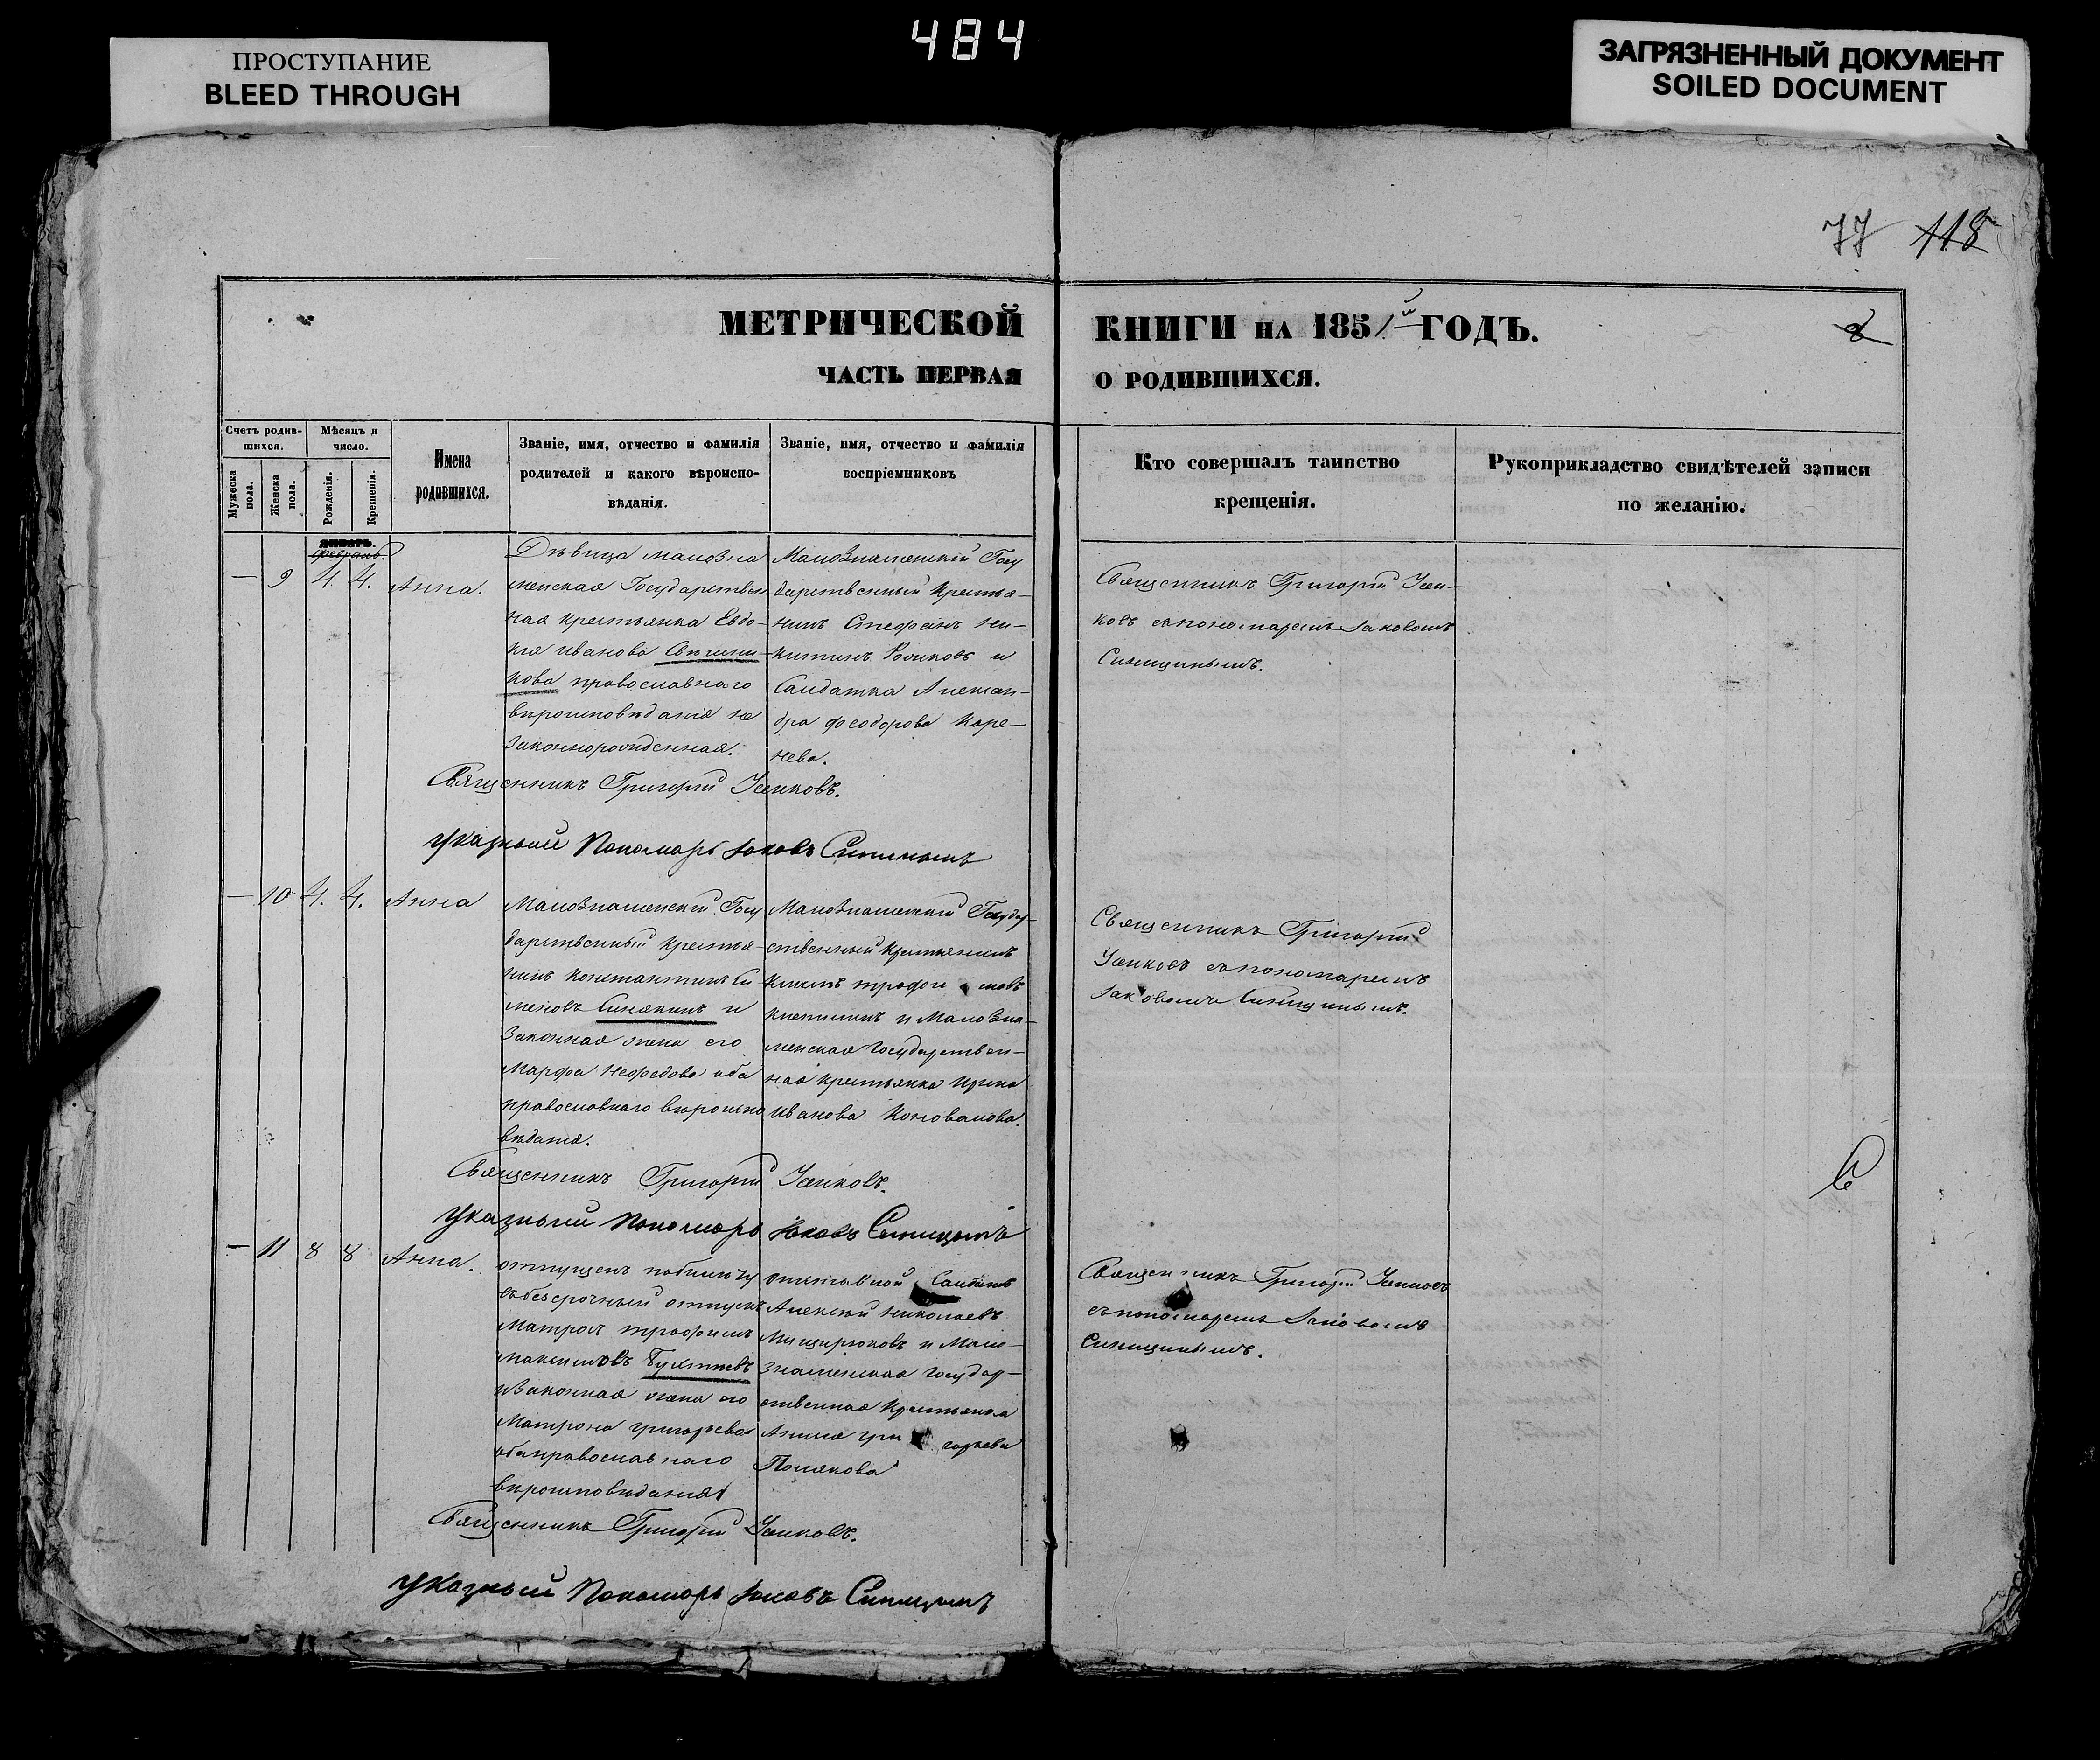 484
ПРОСТУПАНИЕ
BLEED THROUGH
ЗАГРЯЗНЕННЫЙ ДОКУМЕНТ
SOILED DOCUMENT
77 118
МЕТРИЧЕСКОЙ КНИГИ НА 1851й ГОДЪ.
8
ЧАСТЬ ПЕРВАЯ О РОДИВШИХСЯ.
Счетъ родив-
шихся.
Мужеска
пола.
Женска
пола.
Мѣсяцъ и
число.
Рожденія.
Крещенія.
Имена
родившихся.
Званіе, имя, отчество и фамилія
родителей и какого вѣроиспо-
вѣданія.
Званіе, имя, отчество и фамилія
воспріемниковъ
Кто совершалъ таинство
крещенія.
Рукоприкладство свидѣтелей записи
по желанію.
январь.
февраль
— 9 4. 4. Анна.
Дѣвица малозна
менская Государствен
ная крестьянка Евдо-
кія иванова
кова православнаго
вѣроисповѣданія не
законнорожденная.
Малознаменскій Госу
дарственный крестья-
нинъ Стефанъ ни-
китинъ и
Салдатка Алексан-
дра феодорова Коре-
нева.
Священникъ Григорій Усен-
ковъ спономаремъ Іаковомъ
Синицынымъ.
Священникъ Григорій Усенковъ.
Указный Пономарь Іаковъ Синицынъ
— 10 4. 4. Анна
Малознаменскій Госу
дарственный крестья-
нинъ константинъ си
меновъ Синякинъ и
Законная жена его
Марфа Нефедова оба
православнаго вѣроиспо
вѣданія.
Малознаменскій Государ-
ственный крестьянинъ
климъ трофи мовъ
и Малозна-
менская государствен-
ная крестьянка Ирина
иванова Коновалова.
Священникъ Григорій
Усенковъ спономаремъ
Іаковомъ Синицынымъ.
Священникъ Григорій Усенковъ.
Указный Пономарь Іаковъ Синицынъ
— 11 8 8 Анна.
отпущен
въ безсрочный отпускъ
Матрос трофимъ
максимовъ
изаконная жена его
Матрона григорьева
оба православнаго
вѣроисповѣданія
Отставной Салдатъ
Алексѣй николаевъ
Мищерюковъ и Мало-
знаменская государ-
ственная крестьянка
гри горьева
Полякова
Священникъ Григорій Усенковъ
спономаремъ Іаковомъ
Синицынымъ.
Священникъ Григорій Усенковъ.
Указный Пономарь Іаковъ Синицынъ